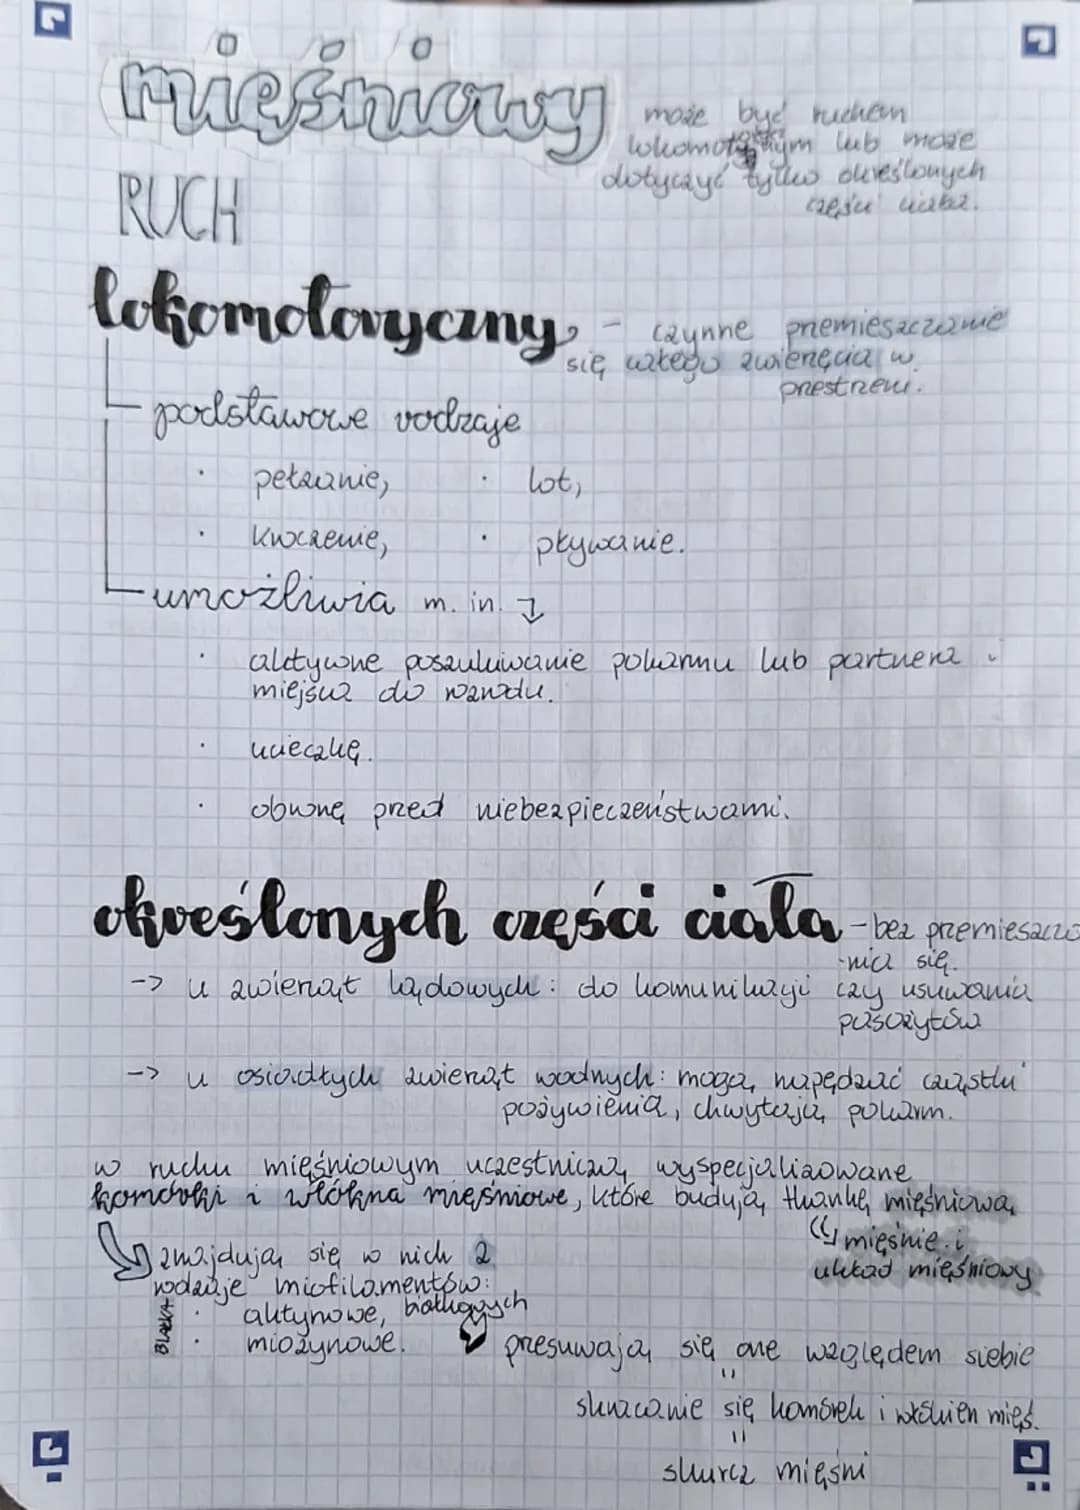 mięśniowy
może być ruchem
lokomotorycznym lub może
dotyczyć tylko określonych
części ciała.
RUCH
lokomotoryczny - czynne przemieszczanie
się całego zwierzęcia w
przestrzeni.
podstawowe rodzaje
· pełzanie, · lot,
· kroczenie, · pływanie.
umożliwia m. in.
· aktywne poszukiwanie pokarmu lub partnera i
miejsca do rozrodu.
· ucieczkę.
· obronę przed niebezpieczeństwami.
określonych części ciała - bez przemieszcza
-nia się.
-> u zwierząt lądowych: do komunikacji czy usuwania
pasożytów
-> u osiadłych zwierząt wodnych: mogą napędzać cząstki
pożywienia, chwytają pokarm.
w ruchu mięśniowym uczestniczą wyspecjalizowane
komórki i włókna mięśniowe, które budują tkankę mięśniową
mięśnie i
układ mięśniowy
znajdują się w nich 2
rodzaje miofilamentów:
białkowych
BIAŁKA
· aktynowe,
· miozynowe.
przesuwają się one względem siebie
"
skracanie się komórek i włókien mięś.
"
skurcz mięśni